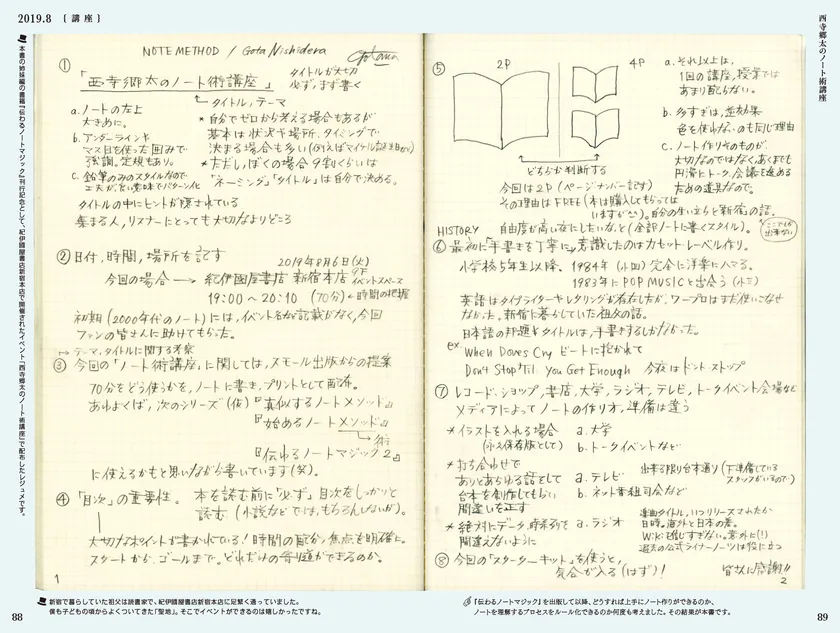 2019.8 [講座]
本書の姉妹編の書籍『伝わるノートマジック』刊行記念として、紀伊國屋書店新宿本店で開催されたイベント「西寺郷太のノート術講座」で配布したレジュメです。
NOTE METHOD / Gota Nishidera
①
「西寺郷太のノート術講座」
タイトルが大切
必ず、まず書く
タイトル、テーマ
a. ノートの左上
大きめに。
b. アンダーラインや
マス目を使った囲みで
強調。定規もあり。
c. 鉛筆のみのスタイルなので
工夫が、良い意味でパターン化
* 自分でゼロから考える場合もあるが
基本は状況や場所、タイミングで
決まる場合も多い(例えばマイケル誕生日など)
* ただし、ぼくの場合9割くらいは
「ネーミング」「タイトル」は自分で決める。
タイトルの中にヒントが隠されている
集まる人、リスナーにとっても大切なよりどころ
② 日付、時間、場所を記す
2019年8月6日(火)
今回の場合 → 紀伊國屋書店 新宿本店 9F
イベントスペース
19:00 〜 20:10 (70分) ← 時間の把握
初期(2000年代のノート)には、イベント名が記載がなく、今回
ファンの皆さんに助けてもらった。
→ テーマ、タイトルに関する考察
③ 今回の「ノート術講座」に関しては、スモール出版からの提案
70分をどう使うかを、ノートに書き、プリントとして配布。
あわよくば、次のシリーズ(仮)『真似するノートメソッド』
『始めるノートメソッド』
術
『伝わるノートマジック2』
に使えるかもと思いながら書いています(笑)。
④ 「目次」の重要性。本を読む前に「必ず」目次をしっかりと
読む(小説などでは、もちろんしないが)。
大切なポイントが書かれている!時間の配分、焦点を明確に。
スタートから、ゴールまで。どれだけの寄り道ができるのか。
1
88
新宿で暮らしていた祖父は読書家で、紀伊國屋書店新宿本店に足繁く通っていました。
僕も子どもの頃からよくついてきた「聖地」。そこでイベントができるのは嬉しかったですね。
西寺郷太のノート術講座
⑤
2P
4P
どちらか判断する
a. それ以上は、
1回の講座、授業では
あまり配らない。
b. 多すぎは、逆効果
色を使わないのも同じ理由
c. ノート作りそのものが、
大切なのではなく、あくまでも
円滑にトーク、会議を進める
ための道具なので。
今回は2P(ページナンバー記す)
その理由はFREE(本は購入してもらっては
いますが)。自分の生い立ちと新宿の話。
自由度が高い夜にしたいな、と(全部ノートに書くスタイル)。
HISTORY
⑥ 最初に「手書きを丁寧に」意識したのはカセット・レーベル作り。
小学校5年生以降、1984年(小四)完全に洋楽にハマる。
1983年にPOP MUSICと出会う(小三)
英語はタイプライターやレタリングが存在したが、ワープロはまだ使いこなせ
なかった。新宿に暮らしていた祖父の話。
日本語の邦題やタイトルは、手書きするしかなかった。
ex. When Doves Cry ビートに抱かれて
Don't Stop 'Til You Get Enough 今夜はドント・ストップ
⑦ レコード・ショップ、書店、大学、ラジオ、テレビ、トークイベント会場など
メディアによってノートの作り方、準備は違う
* イラストを入れる場合
(永久保存版として)
a. 大学
b. トークイベントなど
* 打ち合わせで
ありとあらゆる話をして
台本を制作してもらい
間違いを正す
a. テレビ
b. ネット番組司会など
出来る限り台本通り(下準備している
スタッフがいるので)
* 絶対にデータ、時系列を
間違えないように
a. ラジオ
楽曲タイトル、いつリリースされたか
日時。海外と日本の差。
Wikiを信じすぎない。意外に(!)
過去の公式ライナーノーツは役に立つ
⑧ 今回の「スターターキット」を使うと、
気合が入る(はず)!
皆様に感謝!!
2
『伝わるノートマジック』を出版して以降、どうすれば上手にノート作りができるのか、
ノートを理解するプロセスをルール化できるのか何度も考えました。その結果が本書です。
89